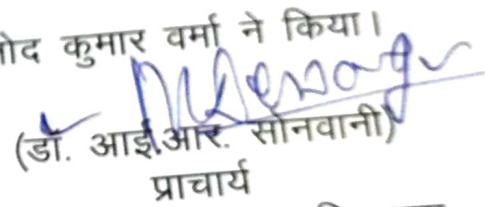 ोद कुमार वर्मा ने किया।
(डॉ. आई.आर. सोनवानी)
प्राचार्य